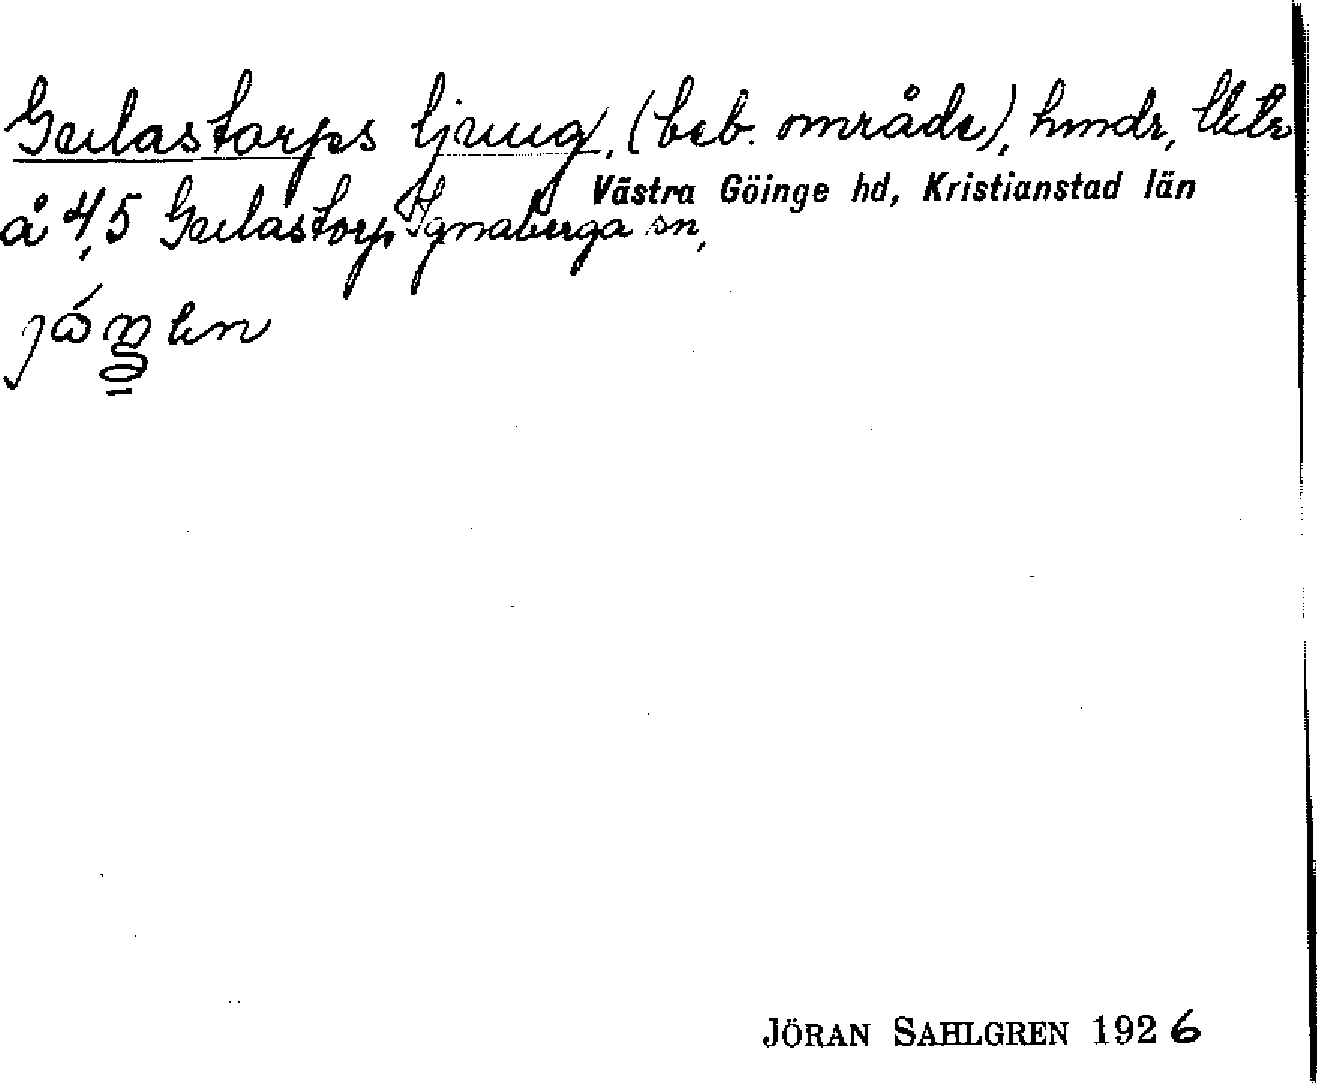 Gulastorps ljung, (beb. område), hmdr,
å 4,5 Gulastorp Ignaberga sn, Västra Göinge hd, Kristianstad län
JÖRAN SAHLGREN 1926